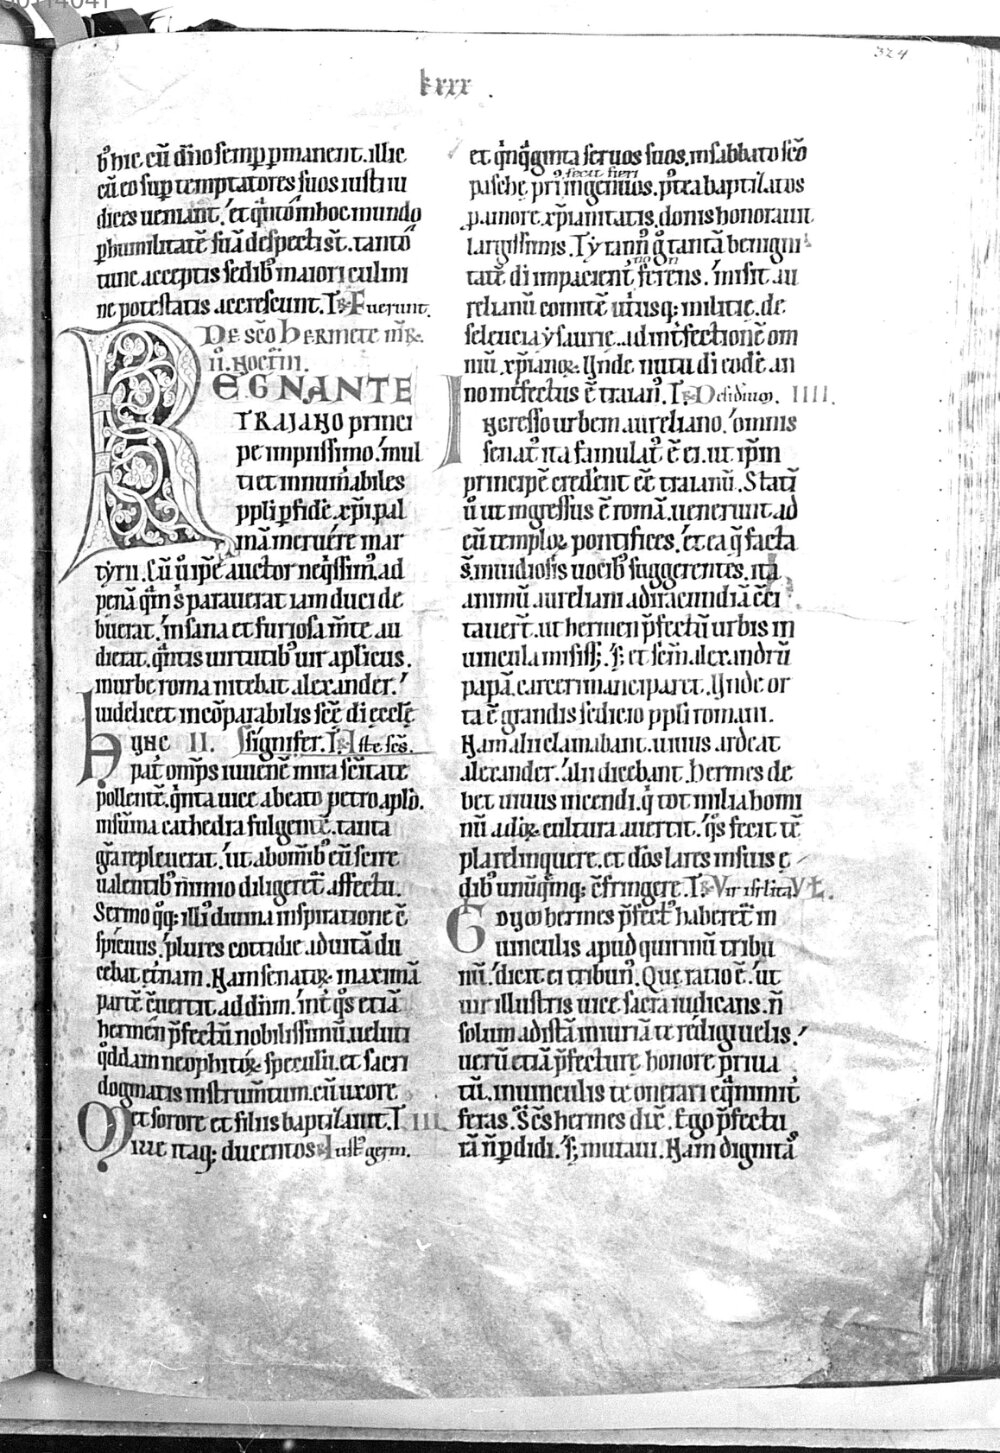 324
lxxx .
b᷒ hic cū dño semp ꝑmanent. illic
cū eo suꝑ temptatores suos iusti iu
dices ueniant. ́et q̄ntō in hoc mundo
ꝑ humilitatē suā despecti st̄. tantō
tunc acceptis sedib᷒ maiori culmi
ne potestatis accrescunt. T. R̄ Fuerunt.
De scō hermete mr̄.
ii. noctnī.
REGNANTE
TRAJANO princi
pe impiissimo. ́mul
ti et innumabiles
ppli ꝑ fidē xp̄i. pal
mā meruére mar
tyrii. Cū ū ipē auctor neq̄ssim᷒. ad
penā q̄m s̄ parauerat iam duci de
buerat. ́insana et furiosa m̄te au
dierat. q̄ntis uirtutib᷒ uir aplicus.
in urbe roma nitebat alexander. ́
uidelicet incōparabilis scē di eccłę
hunc II. signifer. T. R̄ Iste scs̄.
pat̄ omīps iuuenē mira scītate
pollentē. q̄nta uice a beato petro apło.
in sūma cathedra fulgentē. tanta
gr̄a repleuerat. ́ut ab omīb᷒ eū scire
ualentib᷒ nimio diligeret̄ affectu.
Sermo q̄q; illi᷒ diuina inspiratione ē
spicuus. ́plures cottidie ad uitā du
cebat et̄nam. Nam senatoꝝ maximā
partē ꝯuertit ad dn̄m. ́int̄ q̄s etiā
hermen p̄fectū nobilissimū. ueluti
q̄ddam neophitoꝝ speculū. et sacri
dogmatis instrum̄tum. cū uxore
et sorore et filiis baptizauit. T. III.
Mille itaq; ducentos R̄ Iust᷒ germ.
et q̄nq̄ginta seruos suos. in sabbato scō
fecit fieri
paschę pri᷒ ingenuos. p᷒tea baptizatos
ꝑ amore xp̄ianitatis. donis honorauit
largissimis. Tyrann᷒ g̊ tantā benigni
non
tatē di impacient̄ ferens. ́misit au
relianū comitē ut̄usq; militię. de
seleucia ysaurię. ad int̄fectionē om
niū xp̄ianoꝝ. Unde nutu di eodē an
no int̄fectus ē traian᷒. T. R̄ Desideriū. IIII.
Ingresso urbem aureliano. ́omnis
senat᷒ ita famulat᷒ ē ei. ut ipm̄
principē crederent ēē traianū. Statī
ū ut ingressus ē romā. uenerunt ad
eū temploꝝ pontifices. ́et ea q̄ facta
s̄. inuidiosis uocib᷒ suggerentes. ita
animū aureliani ad iracundiā ꝯci
tauer̄t. ut hermen p̄fectū urbis in
uincula misiss;. s; et scm̄ alexandrū
papā. carceri manciparet. Unde or
ta ē grandis sedicio ppli romani.
Nam alii clamabant. uiuus ardeat
alexander. ́alii dicebant. hermes de
bet uiuus incendi. q̄ tot milia homi
nū a dōꝝ cultura auertit. ́q̄s fecit tē
pla relinquere. et dōs lares in suis ę
dib᷒ unūq̄mq; ꝯfringere. T. R̄ Vir isrlita V Ł.
Cum hermes p̄fect᷒ haberet̄ in
uinculis apud quirinū tribu
nū. ́dicit ei tribun᷒. Quę ratio ē. ́ut
uir illustris uice sacra iudicans. n̄
solum ad istā iniuriā te rédigi uelis. ́
uerū etiā p̄fecturę honore priua
tū. in uinculis te onerari eq̄nimit̄
feras. Scs̄ hermes dix̄. Ego p̄fectu
rā n̄ ꝑdidi. s; mutaui. Nam dignitā